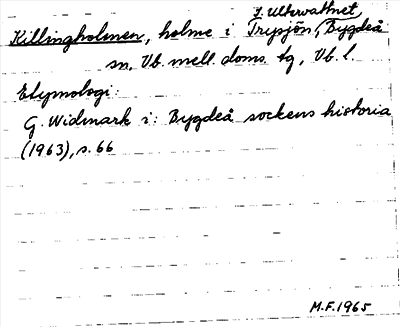 f. Ulterwattnet
Killingholmen, holme i Trysjön, Bygdeå
sn, Vb. mell. doms. tg, Vb. l.
Etymologi:
G. Widmark i: Bygdeå sockens historia
(1963), s. 66
M.F. 1965